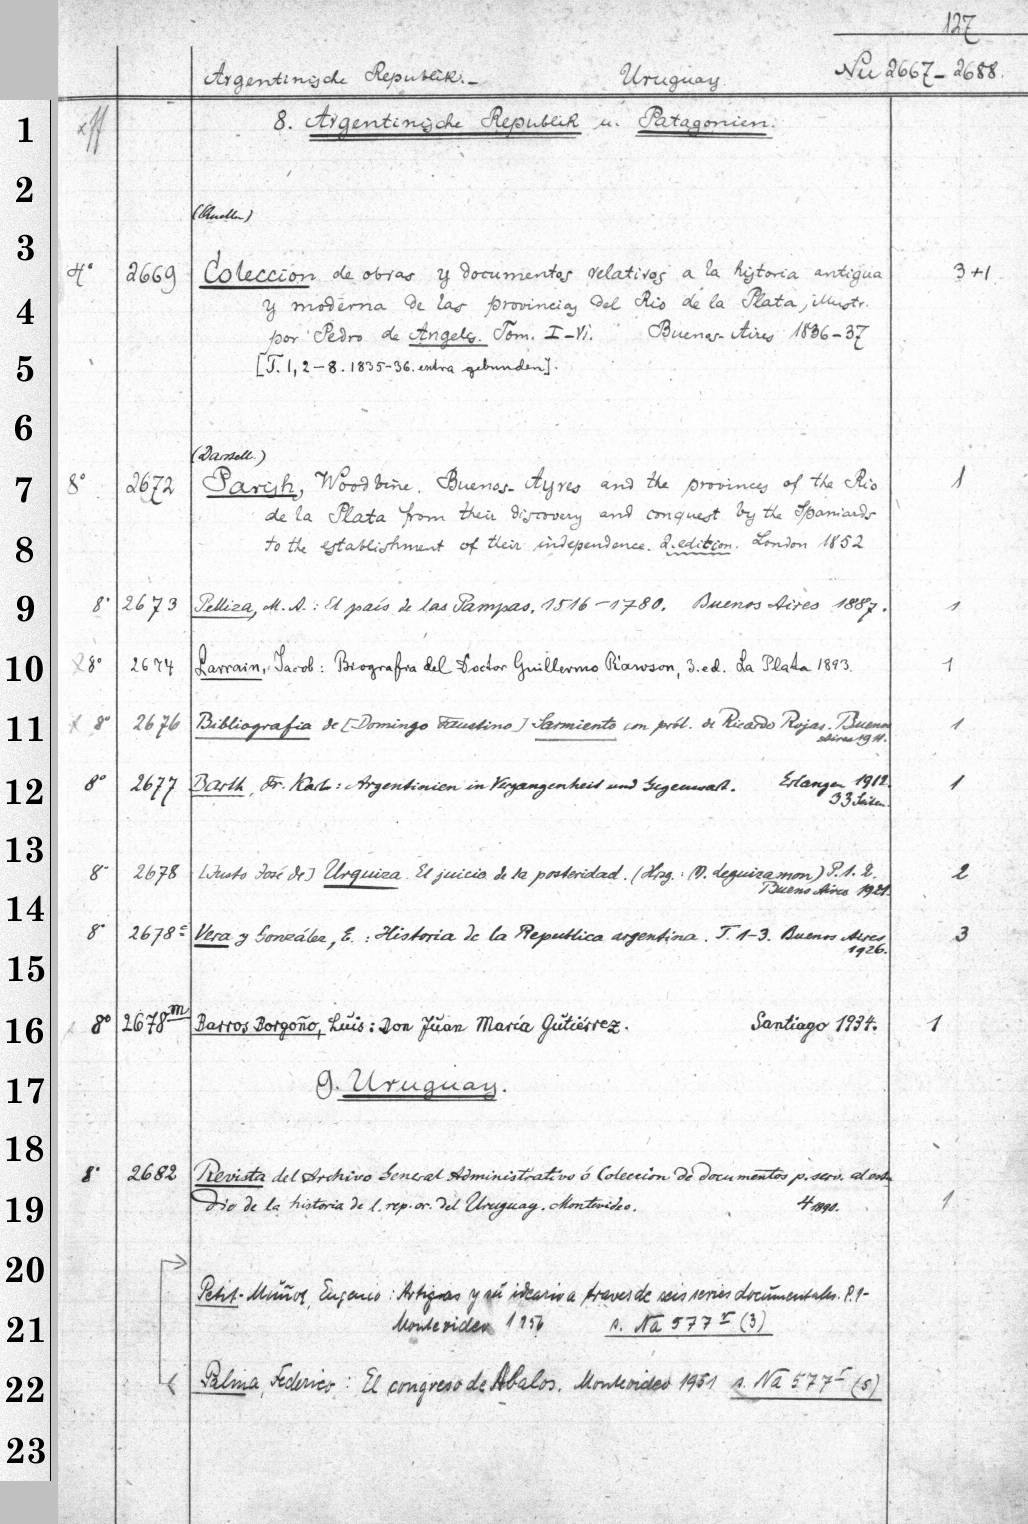 127
Argentinische Republik.- Uruguay. Nu 2667-2688.
1 8. Argentinische Republik u. Patagonien.
2
(Quellen)
3 4° 2669 Coleccion de obras y documentos relativos a la historia antigua 3+1.
4 y moderna de las provincias del Rio de la Plata, illustr.
por Pedro de Angelis. Tom. I-VI. Buenos-Aires 1836-37
5 [T. 1, 2-8. 1835-36. extra gebunden].
6
(Darstell.)
7 8° 2672 Parish, Woodbine. Buenos-Ayres and the provinces of the Rio 1
de la Plata from their discovery and conquest by the Spaniards
8 to the establishment of their independence. 2. edition. London 1852
9 8° 2673 Pelliza, M. A.: El país de las Pampas. 1516-1780. Buenos Aires 1887. 1
10 8° 2674 Larrain, Jacob: Biografia del Doctor Guillermo Rawson, 3. ed. La Plata 1893. 1
11 8° 2676 Bibliografia de [Domingo Faustino] Sarmiento con pról. de Ricardo Rojas. Buenos 1
Aires 1911.
12 8° 2677 Barth, Karl: Argentinien in Vergangenheit und Gegenwart. Erlangen 1912. 1
33 Seiten.
13
8° 2678 [Justo José de] Urquiza. El juicio de la posteridad. (Hrsg.: (D. Leguizamon) P. 1. 2. 2
14 Buenos Aires 1921.
8° 2678e Vera y González, E.: Historia de la Republica argentina. T. 1-3. Buenos Aires 3
1926.
15
16 8° 2678m Barros Borgoño, Luis: Don Juan María Gutiérrez. Santiago 1934. 1
17 9. Uruguay.
18
8° 2682 Revista del Archivo General Administrativo ó Coleccion de documentos p. serv. al estu
19 dio de la historia de l. rep. or. del Uruguay. Montevideo. 4 1
20
Petit-Muñoz, Eugenio: Artigas y su ideario a traves de seis series documentales. P. 1-
21 Montevideo 1956 s. Na 577 r (3)
22 Palma, Federico: El congreso de Abalos. Montevideo 1951 s. Na 577 r (5)
23